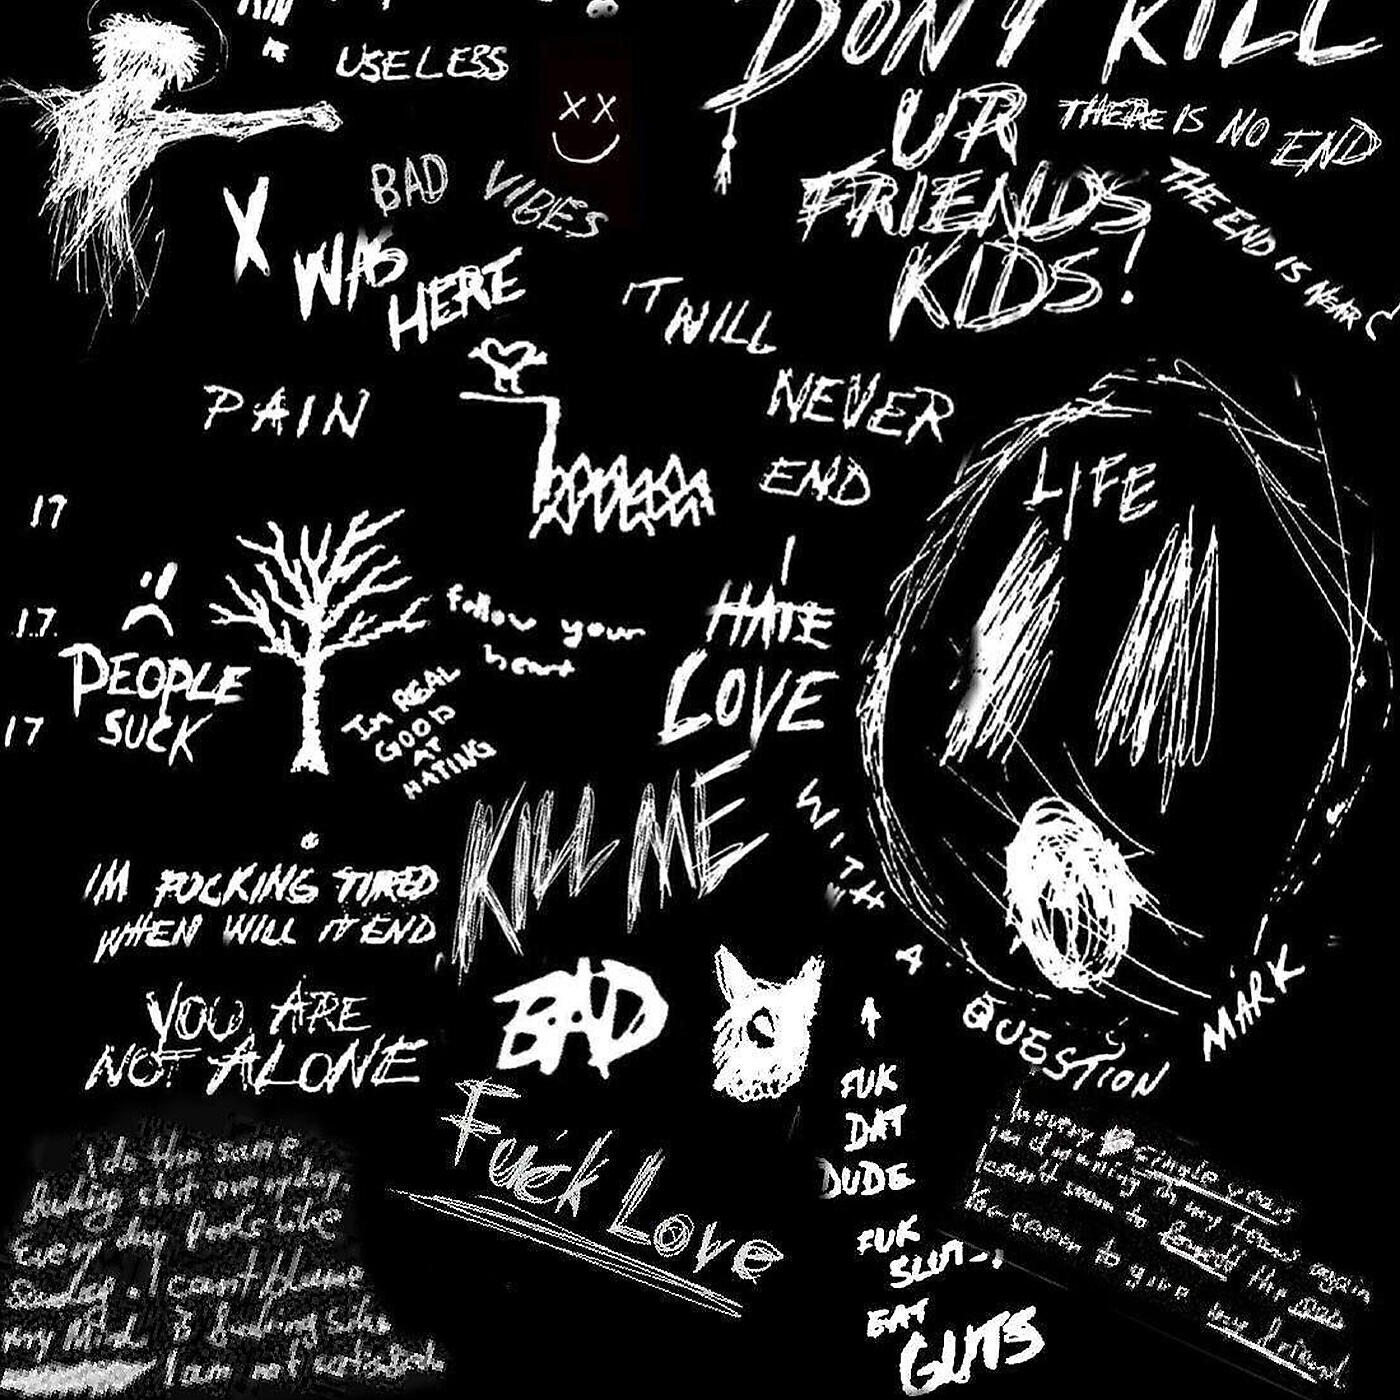 USELESS
DON'T KILL
UR
FRIENDS
KIDS!
THERE IS NO END
THE END IS NEAR
BAD VIBES
X
WAS
HERE
IT WILL
NEVER
END
PAIN
LIFE
17
17.
17
PEOPLE
SUCK
follow your
heart
IM REAL
GOOD
AT
HATING
I
HATE
LOVE
KILL ME
WITH
A
QUESTION
MARK
IM FUCKING TIRED
WHEN WILL IT END
YOU ARE
NOT ALONE
BAD
Fuck Love
FUK
DAT
DUDE
FUK
SLUTS!
EAT
GUTS
I do the same
fucking shit everyday.
Every day feels like
Sunday. I cant blame
my Mind. fucking
I am not
In every single
I'm drowning in my again
I can't seem to this
You seem to give my friend.